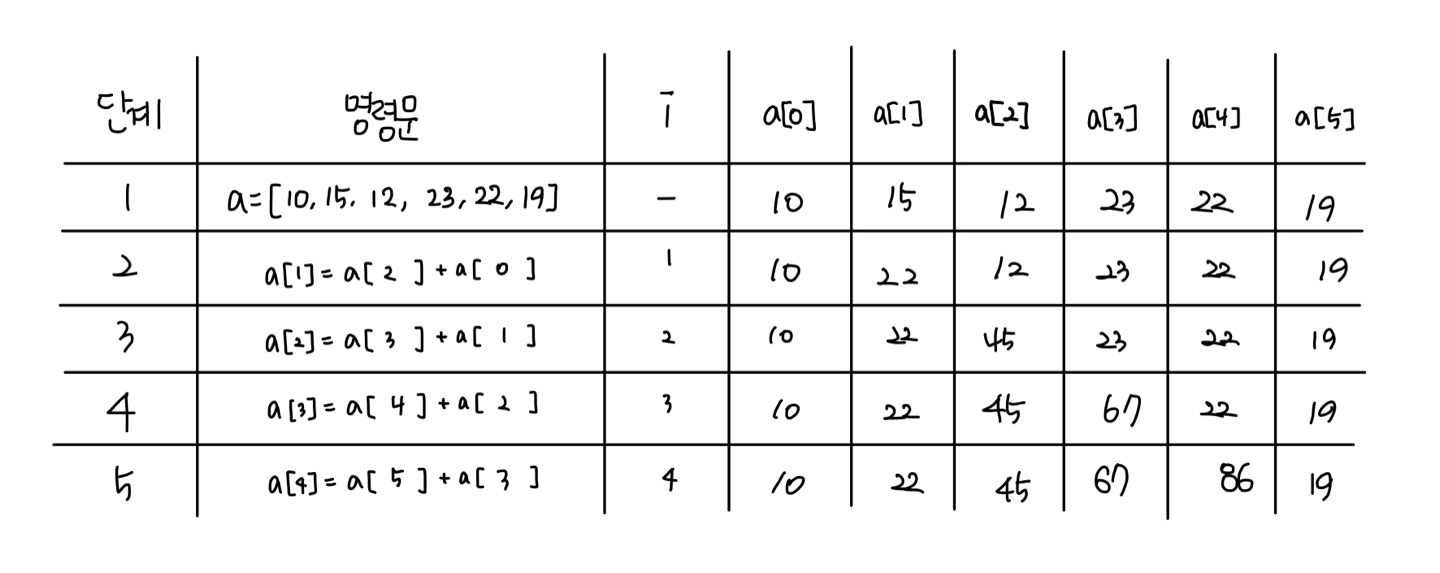 단계 명령문 i a[0] a[1] a[2] a[3] a[4] a[5]
1 a=[10, 15. 12, 23, 22, 19] - 10 15 12 23 22 19
2 a[1]=a[ 2 ]+a[ 0 ] 1 10 22 12 23 22 19
3 a[2]=a[ 3 ]+a[ 1 ] 2 10 22 45 23 22 19
4 a[3]=a[ 4 ]+a[ 2 ] 3 10 22 45 67 22 19
5 a[4]=a[ 5 ]+a[ 3 ] 4 10 22 45 67 86 19